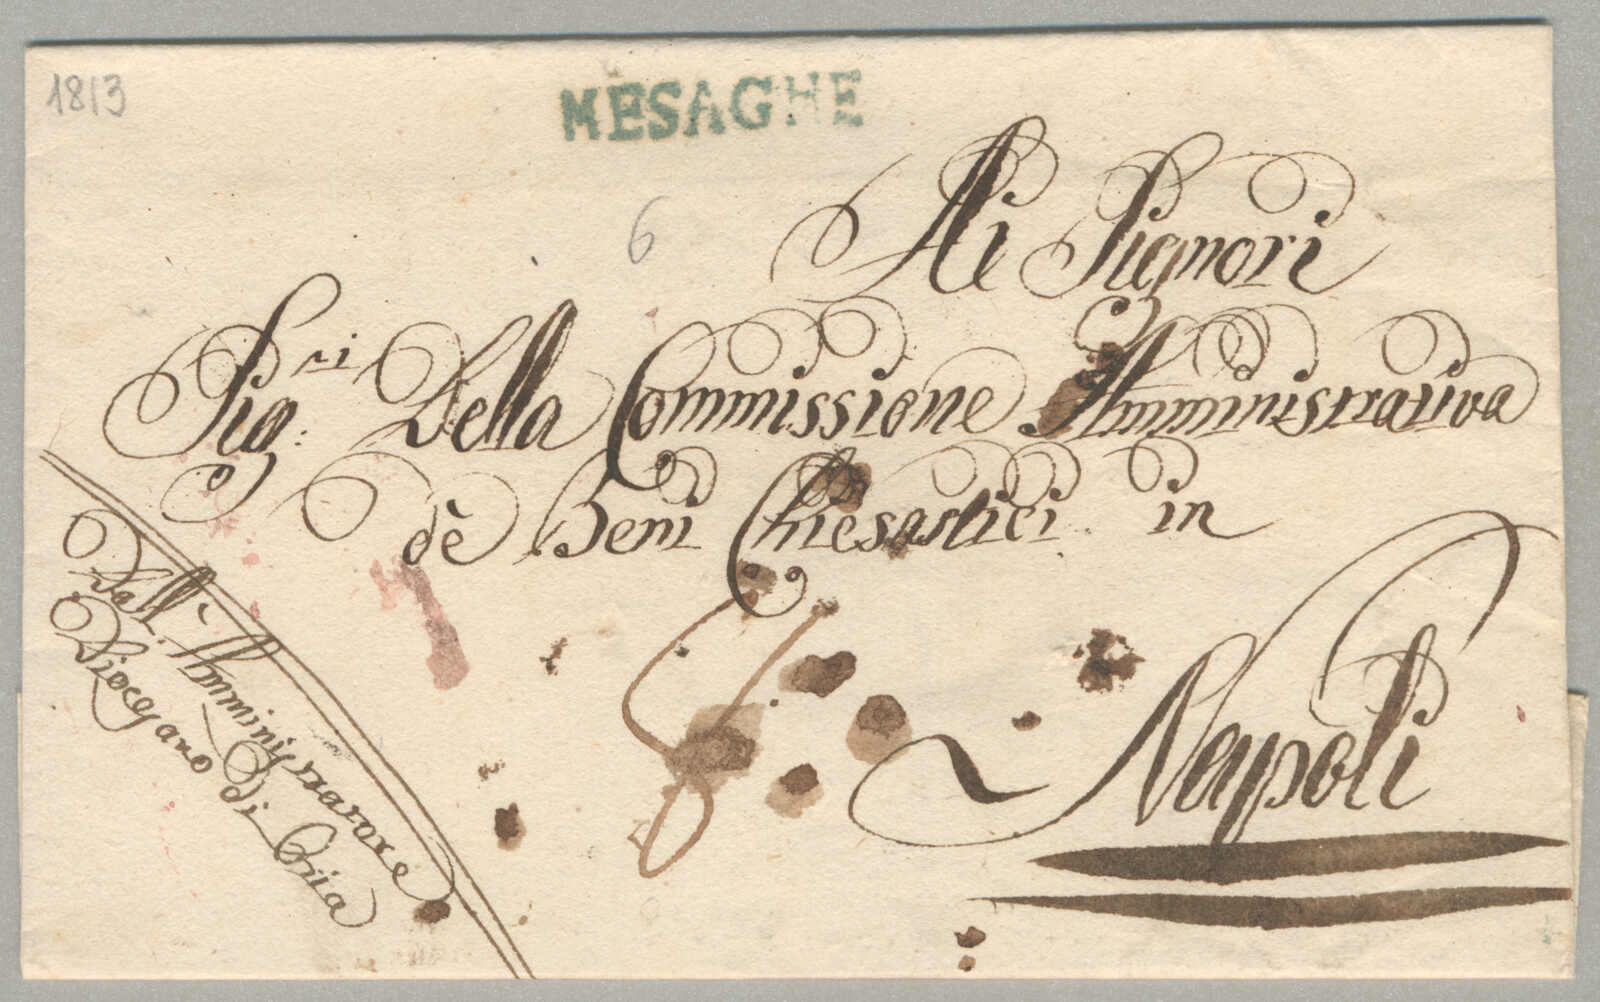 1813
MESAGHE
6
Ai Signori
Sig:ri Della Commissione Amministrativa
dè Beni Chiesastici in
8
Napoli
Dall'Amministratore
Diocesano di Oria